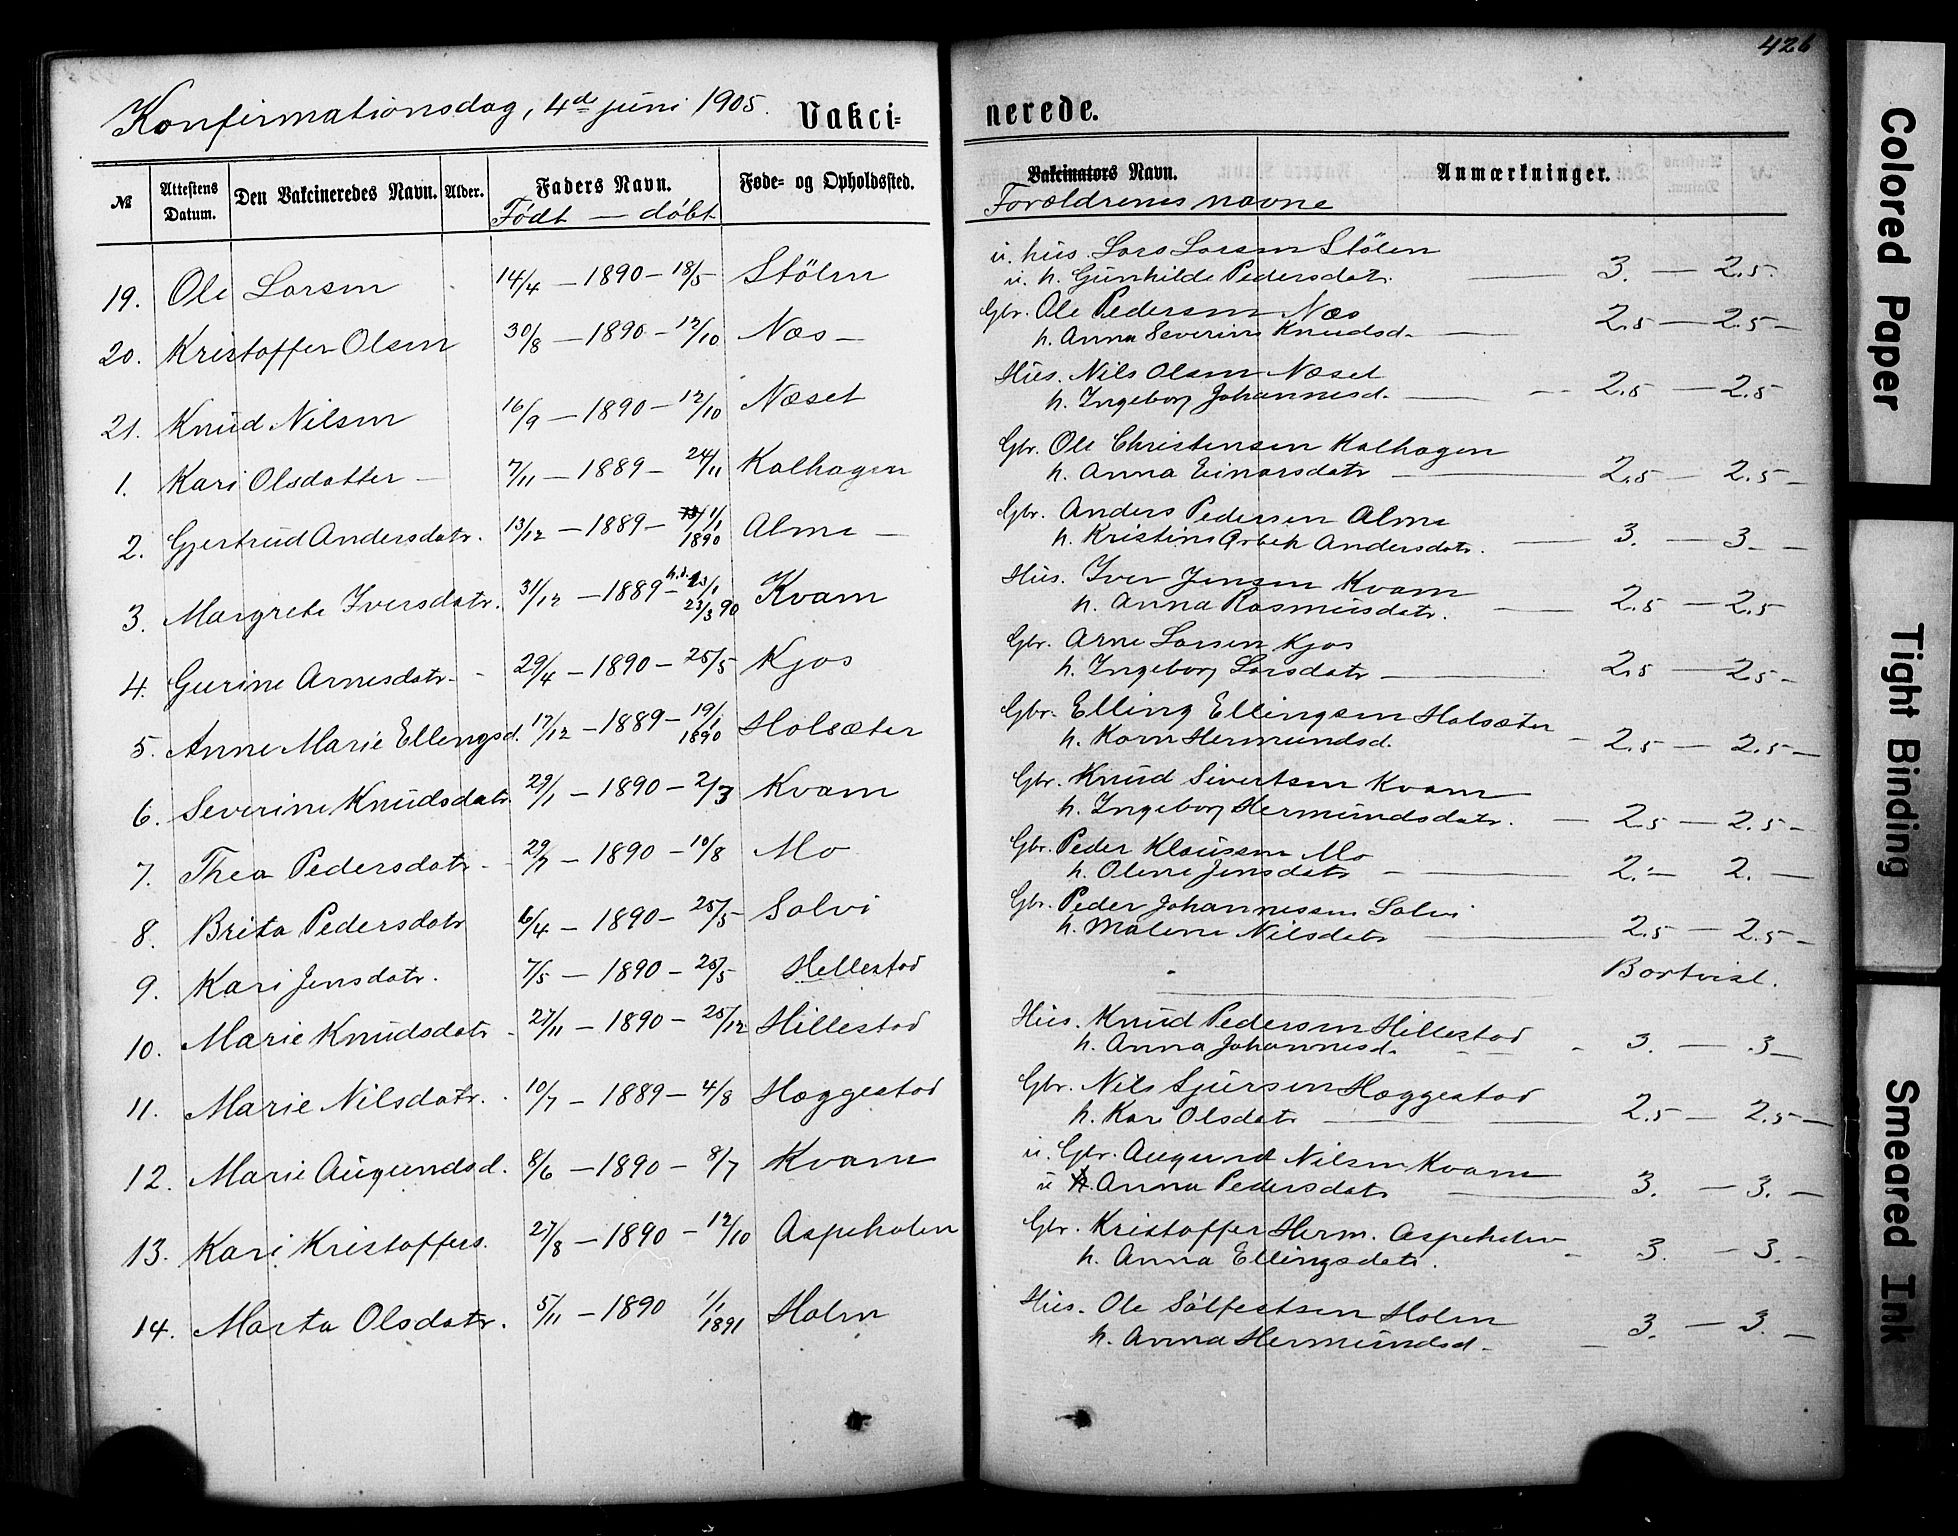 426
Konfirmationsdag, 4de juni 1905.
Vakci=
nerede.
№ Attestens Datum. Den Vakcineredes Navn. Alder. Faders Navn. Føde- og Opholdssted. Vakcinators Navn. Anmærkninger.
Født — døbt Forældrenes navne
19. Ole Larsen 14/4 — 1890 — 18/5 Stölen u. hus. Lars Larsen Stölen
u. h. Gunhilde Pedersdatr. — 3. — 2.5.
20. Kristoffer Olsen 30/8 — 1890 — 12/10 Næs — Gbr. Ole Pedersen Næs
h. Anna Severine Knudsd. — 2.5 — 2.5 —
21. Knud Nilsen 16/9 — 1890 — 12/10 Næset Hus. Nils Olsen Næset
h. Ingeborg Johannesd. — 2.5 — 2.5
1. Kari Olsdatter — 7/11 — 1889 — 24/11 Kalhagen Gbr. Ole Christensen Kalhagen
h. Anna Einarsdatr — 2.5 — 2.5 —
2. Gjertrud Andersdatr. 13/12 — 1889 — 1/1 1890 Alme — Gbr. Anders Pedersen Alme
h. Kristine Andersdatr. — 3. — 3 — —
3. Margrete Iversdatr. 31/12 — 1889 — h.d. 23/1 23/3 90 Kvam Hus. Iver Jensen Kvam
h. Anna Rasmusdatr. — 2.5 — 2.5
4. Gurine Arnesdatr. - 29/4 — 1890 — 25/5 Kjos Gbr. Arne Larsen Kjos
h. Ingeborg Larsdatr — 2.5 — 2.5 -
5. Anne Marie Ellengsd. 17/12 — 1889 — 19/1 1890 Holsæter Gbr. Elling Ellingsen Holsæter
h. Karn Hermundsd. — 2.5 — 2.5 —
6. Severine Knudsdatr 29/1 — 1890 — 2/3 Kvam Gbr. Knud Sivertsen Kvam
h. Ingeborg Hermundsdatr. — 2.5 — 2.5 —
7. Thea Pedersdatr - 29/7 — 1890 — 10/8 Mo Gbr. Peder Klausen Mo
h. Oline Jensdatr — 2. — 2. —
8. Brita Pedersdatr 6/4 — 1890 — 25/5 Solvi Gbr. Peder Johannessen Solvi
h. Malene Nilsdatr — 2.5 — 2.5 —
9. Kari Jensdatr. 7/5 — 1890 — 25/5 Hellestad Bortvist.
10. Marie Knudsdatr - 27/11 — 1890 — 25/12 Hillestad Hus. Knud Pedersen Hillestad
h. Anna Johannesd. - 3. — 3 —
11. Marie Nilsdatr. 10/7 — 1889 — 4/8 Hæggestad Gbr. Nils Sjursen Hæggestad
h. Kari Olsdatr — 2.5 — 2.5 —
12. Marie Augundsd. 8/6 — 1890 — 8/7 Kvam u. Gbr. Augund Nilsen Kvam
u h. Anna Pedersdatr — 3. — 3. —
13. Kari Kristoffers. 27/8 — 1890 — 12/10 Aspeholen Gbr. Kristoffer Herm. Aspeholen
h. Anna Ellingsdatr. - 3. — 3. —
14. Marta Olsdatr. 5/11 — 1890 1/1 1891 Holm Hus. Ole Sølfestsen Holm
h. Anna Hermundsd — 3. — 3. —
Colored Paper
Tight Binding
Smeared Ink